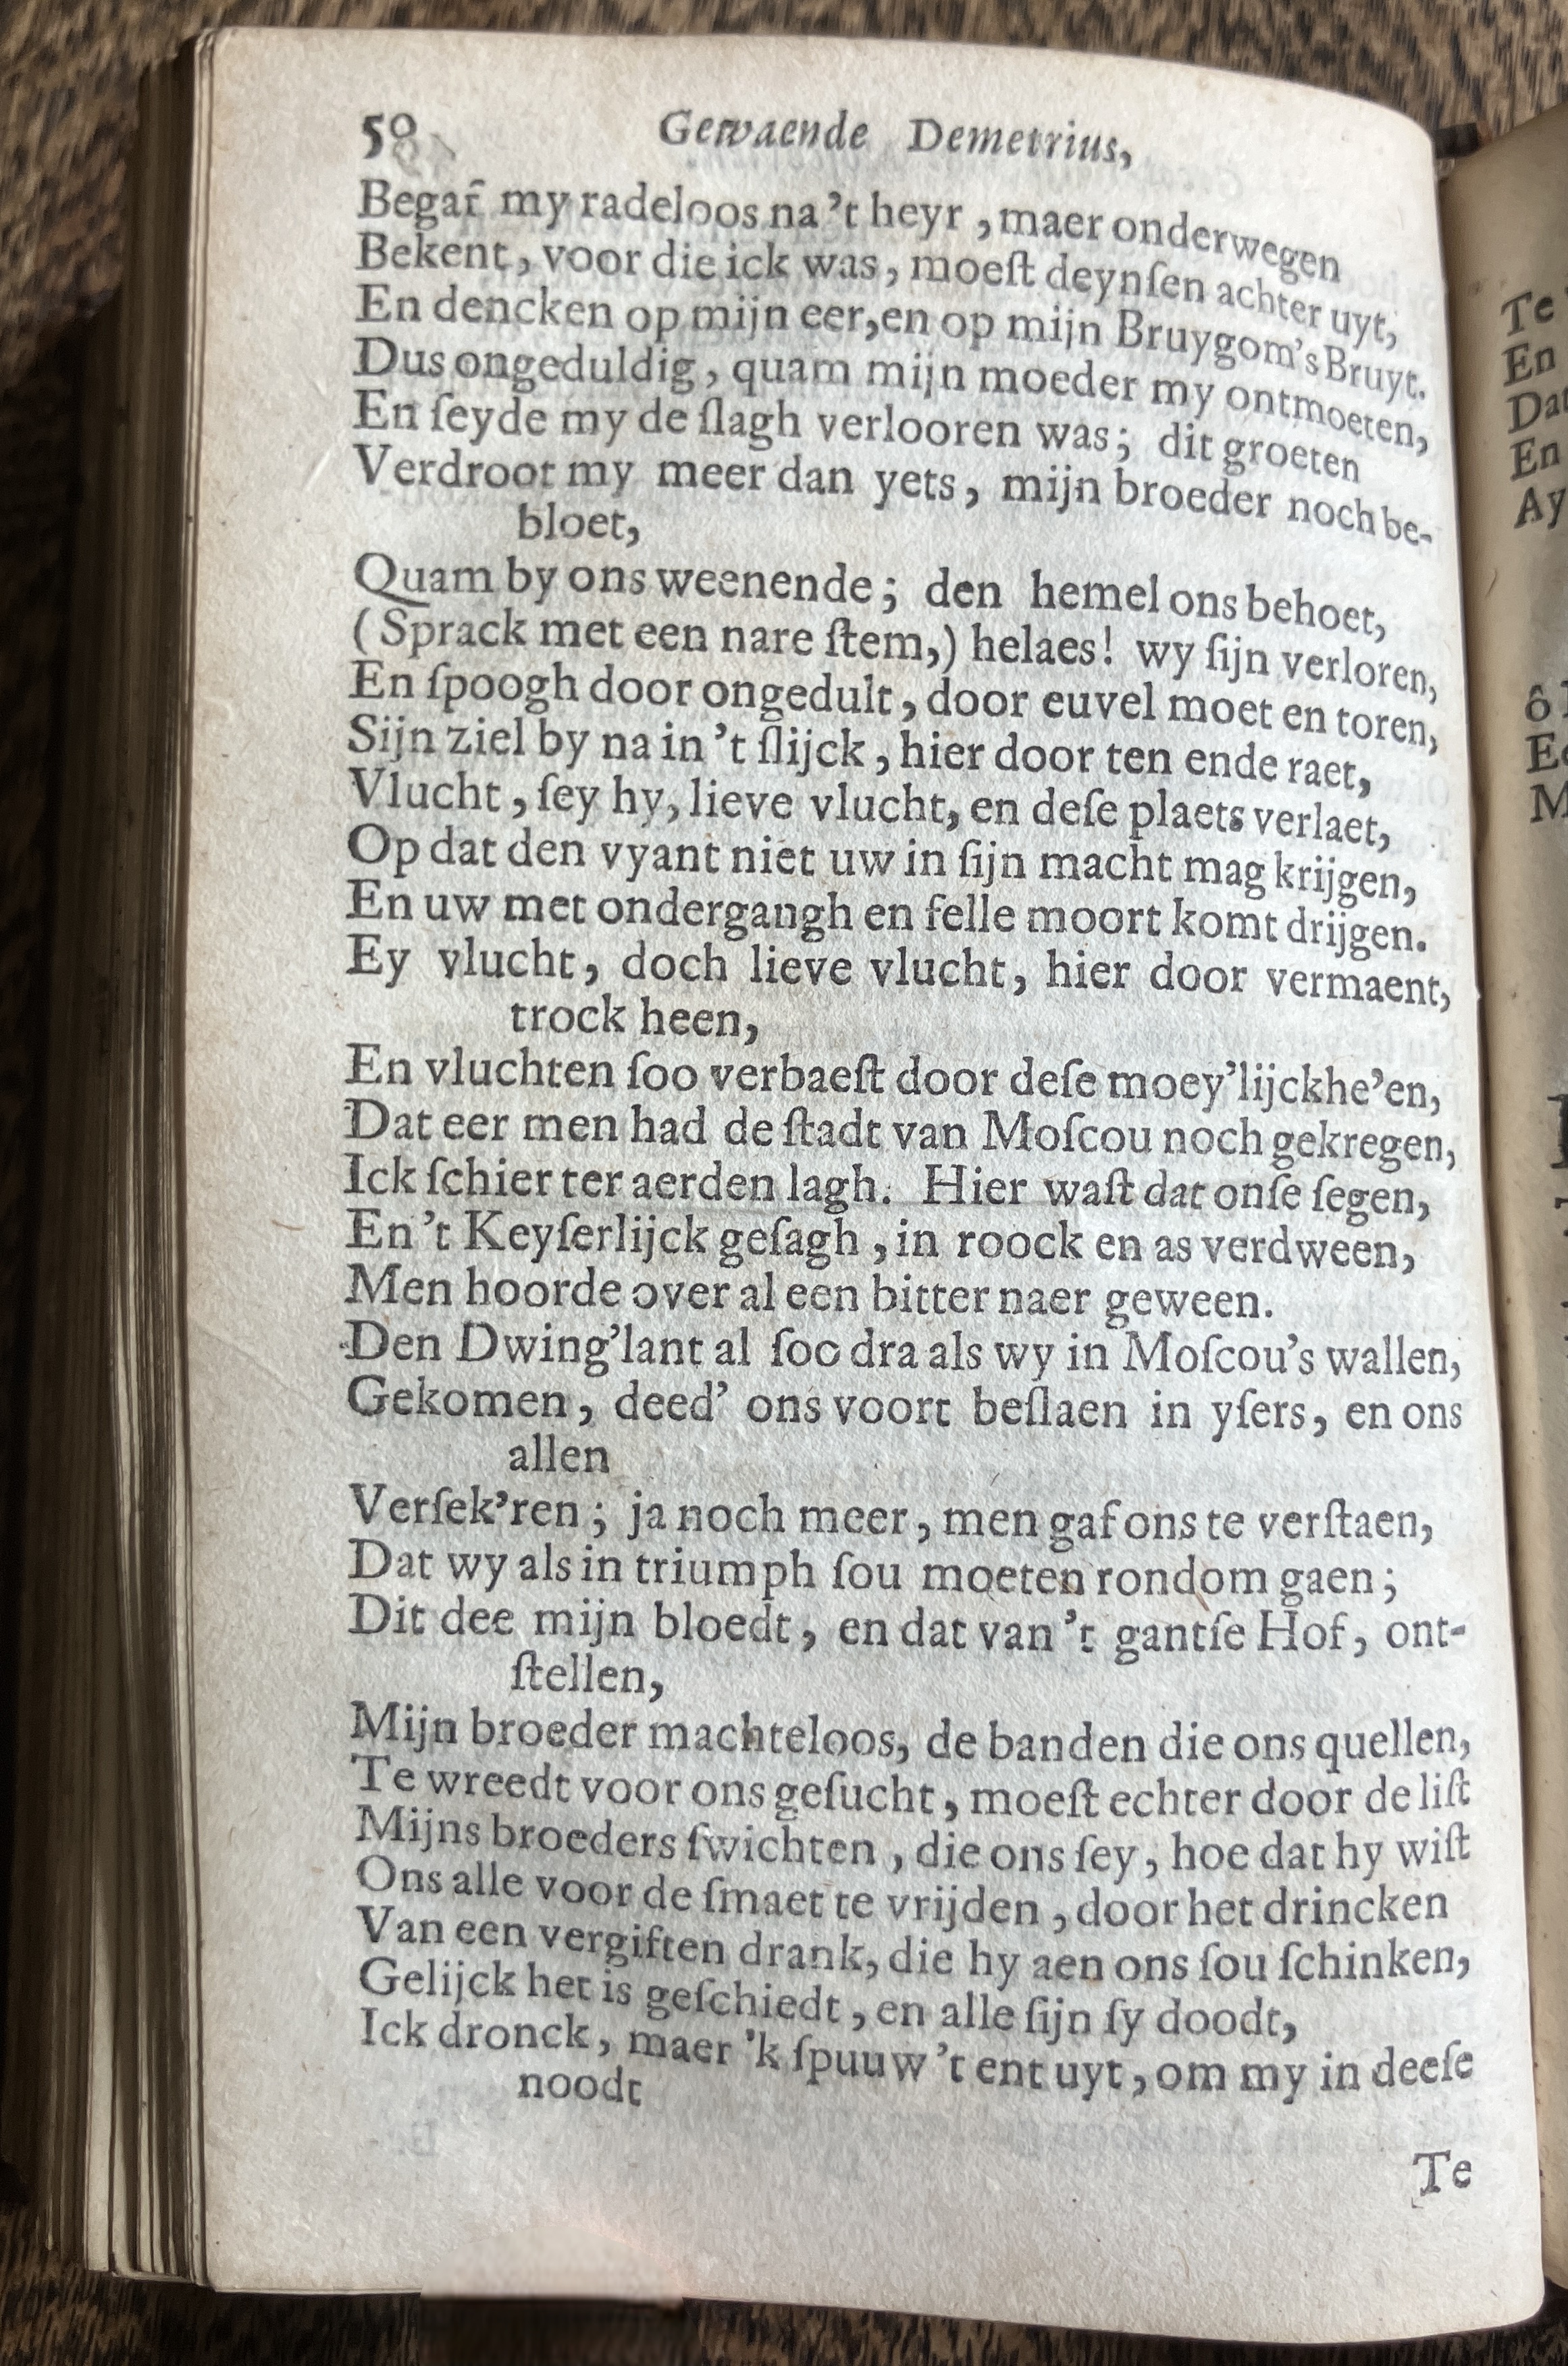 58 Gewaende Demetrius,
Begaf my radeloos na 't heyr, maer onderwegen
Bekent, voor die ick was, moeſt deynſen achter uyt,
En dencken op mijn eer, en op mijn Bruygom's Bruyt.
Dus ongeduldig, quam mijn moeder my ontmoeten,
En ſeyde my de ſlagh verlooren was; dit groeten
Verdroot my meer dan yets, mijn broeder noch be-
bloet,
Quam by ons weenende; den hemel ons behoet,
(Sprack met een nare ſtem,) helaes! wy ſijn verloren,
En ſpoogh door ongedult, door euvel moet en toren,
Sijn ziel by na in 't ſlijck, hier door ten ende raet,
Vlucht, ſey hy, lieve vlucht, en deſe plaets verlaet,
Op dat den vyant niet uw in ſijn macht mag krijgen,
En uw met ondergangh en felle moort komt drijgen.
Ey vlucht, doch lieve vlucht, hier door vermaent,
trock heen,
En vluchten ſoo verbaeſt door deſe moey'lijckhe'en,
Dat eer men had de ſtadt van Moſcou noch gekregen,
Ick ſchier ter aerden lagh. Hier waſt dat onſe ſegen,
En 't Keyſerlijck geſagh, in roock en as verdween,
Men hoorde over al een bitter naer geween.
Den Dwing'lant al ſoo dra als wy in Moſcou's wallen,
Gekomen, deed' ons voort beſlaen in yſers, en ons
allen
Verſek'ren; ja noch meer, men gaf ons te verſtaen,
Dat wy als in triumph ſou moeten rondom gaen;
Dit dee mijn bloedt, en dat van 't gantſe Hof, ont-
ſtellen,
Mijn broeder machteloos, de banden die ons quellen,
Te wreedt voor ons geſucht, moeſt echter door de liſt
Mijns broeders ſwichten, die ons ſey, hoe dat hy wiſt
Ons alle voor de ſmaet te vrijden, door het drincken
Van een vergiften drank, die hy aen ons ſou ſchinken,
Gelijck het is geſchiedt, en alle ſijn ſy doodt,
Ick dronck, maer 'k ſpuuw 't ent uyt, om my in deeſe
noodt
Te